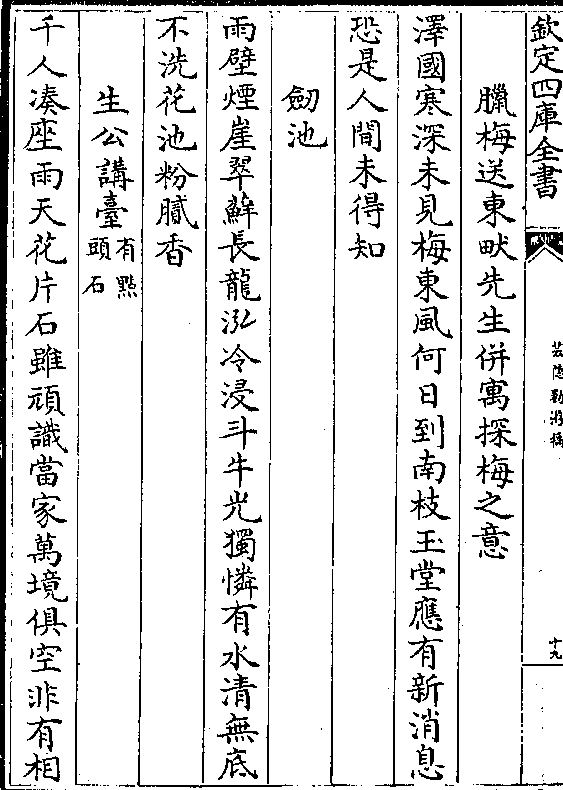 欽定四庫全書
芸隱勌游稿
十九
臘梅送東畎先生併寓探梅之意
澤國寒深未見梅東風何日到南枝玉堂應有新消息
恐是人間未得知
劒池
雨壁煙崖翠蘚長龍泓冷浸斗牛光獨憐有水清無底
不洗花池粉膩香
生公講臺有點頭石
千人湊座雨天花片石雖頑識當家萬境俱空非有相